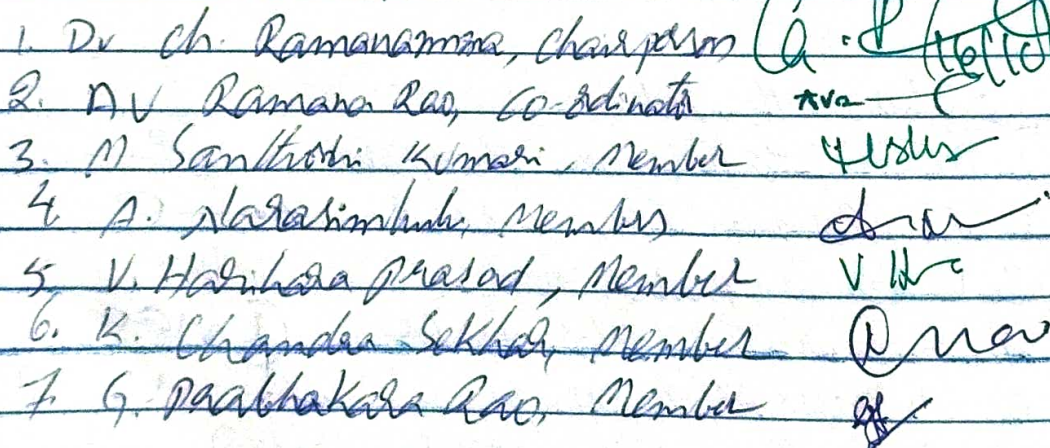 1. Dr Ch. Ramanamma, Chairperson
2. AV Ramana Rao, Co-ordinator
3. M Santhoshi Kumari, Member
4. A. Narasimhulu, Member
5. V. Harihara Prasad, Member
6. K. Chandra Sekhar, Member
7. G. Prabhakara Rao, Member